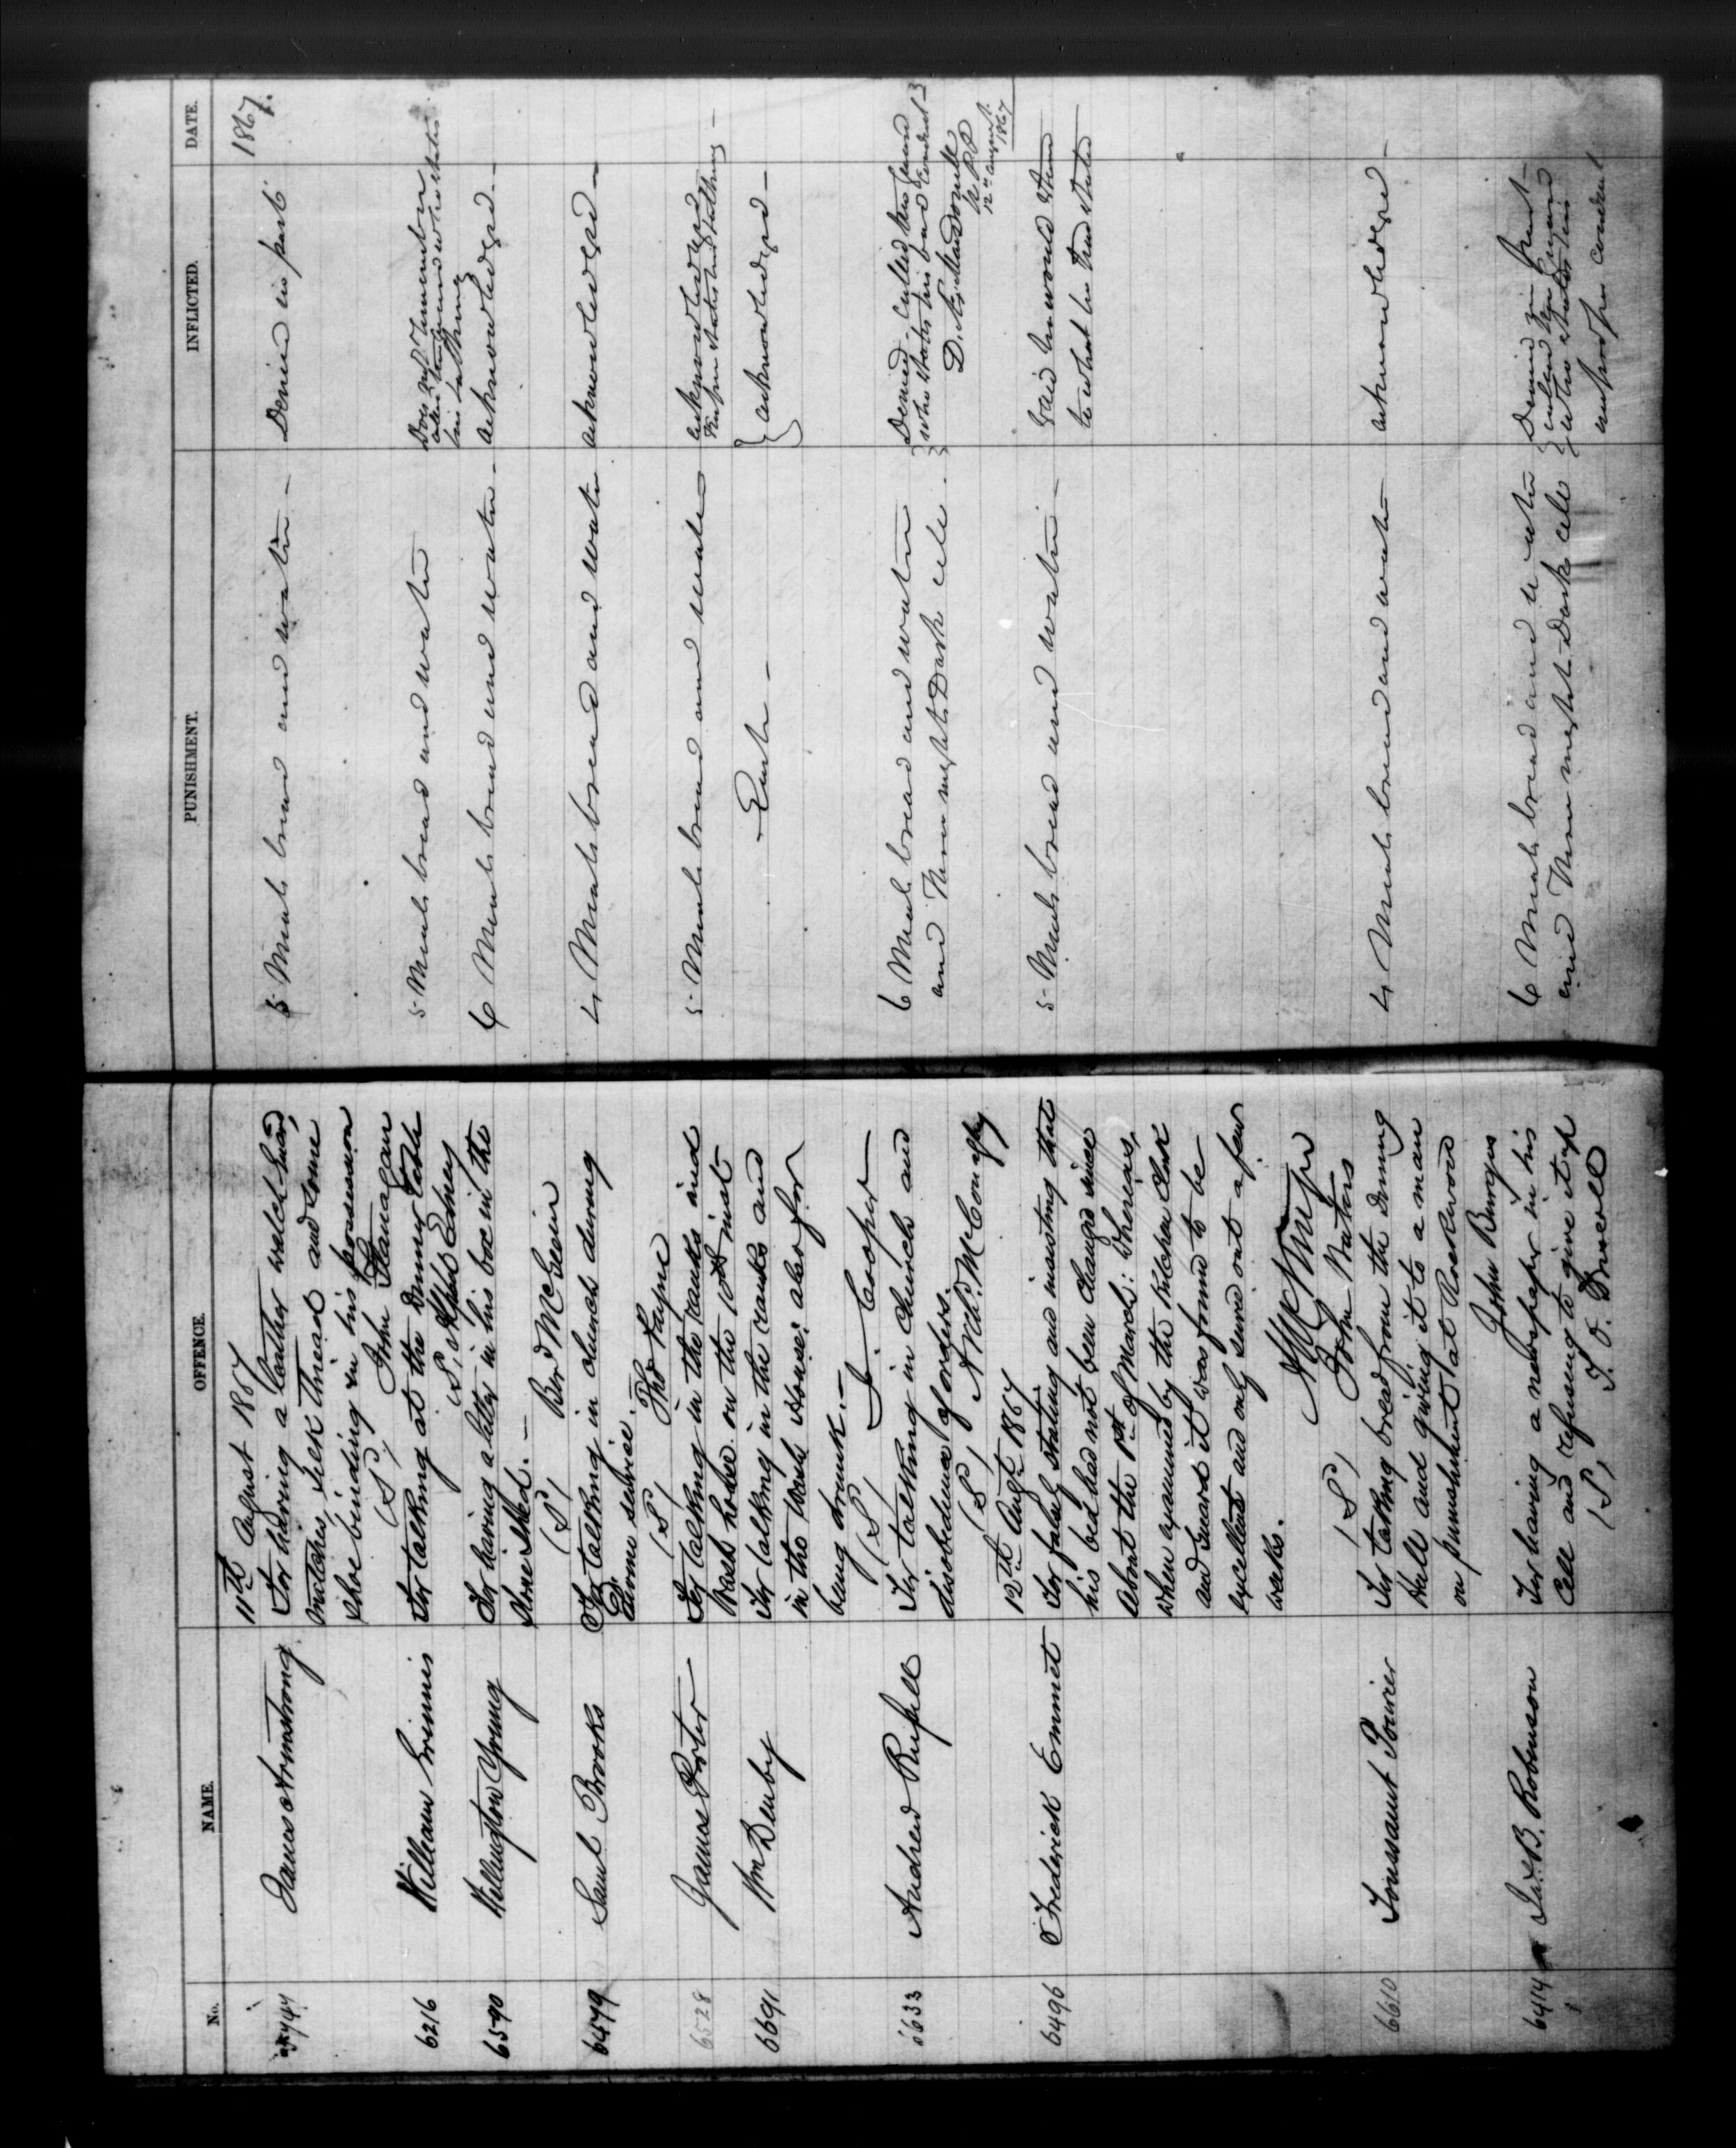 No. NAME. OFFENCE. PUNISHMENT. INFLICTED. DATE.
11th August 1867 1867.
James Armstrong For having a leather watch-guard, 5 Meals bread and water - Denied in part
matches, silk thread and some
shoe binding in his possession
(S) John Flanagan
6216 William Grinnis For talking at the Dinner table 5 Meals bread and water Does not remember
(S)
6590 Wellington Young For having a letter in his box in the 6 Meals bread and water - acknowledged -
Stone Shed. -
(S)
6479 Saml Brooks For talking in church during 4 Meals bread and water acknowledged -
Divine service.
(S) Thos Payne
6528 James Porter For talking in the ranks and 5 Meals bread and water acknowledged
Wash house on the 10th inst
6691 Wm Denby For talking in the ranks and acknowledged -
in the Wash House: also for
being drunk. -
(S) J. Cooper
6633 Andrew Russell For talking in Church and 6 Meals bread and water Denied -
disobedience of orders. and Three nights Dark cell.
(S) Archd. McConaghy
12th Augt 1867 12th August 1867
6496 Frederick Emmet For falsely stating and insisting that 5 Meals bread and water - Said he would
his bed had not been changed since to what he had stated
about the 1st of March: Whereas,
when examined by the Kitchen Clerk
and Guard it was found to be
excellent and only served out a few
weeks.
(S) John Waters
6610 Toussaint Poirier For taking bread from the Dining 4 Meals bread and water acknowledged -
Hall and giving it to a man
on punishment at Rockwood
John Burgess
6414 Jas. B. Robinson For having a newspaper in his 6 Meals bread and water Denied in part -
Cell and refusing to give it up and Three nights Dark cell
(S) T. O. Driscoll